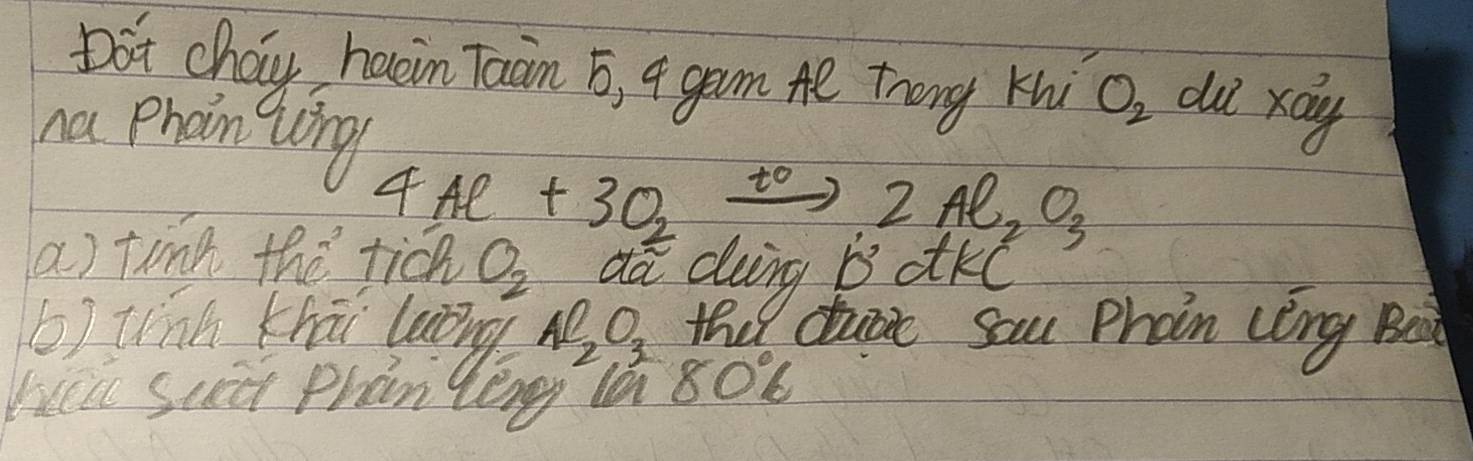 Đốt cháy hoàn Toàn 5,4 gam Al Trong Khí O₂ dư xảy
ra Phản ứng
4 Al + 3O₂ t° → 2 Al₂O₃
a) Tính thể tích O₂ đã dùng ở đkc
b) tính khối lượng Al₂O₃ thu được sau Phản ứng Biết
hiệu suất Phản ứng là 80%